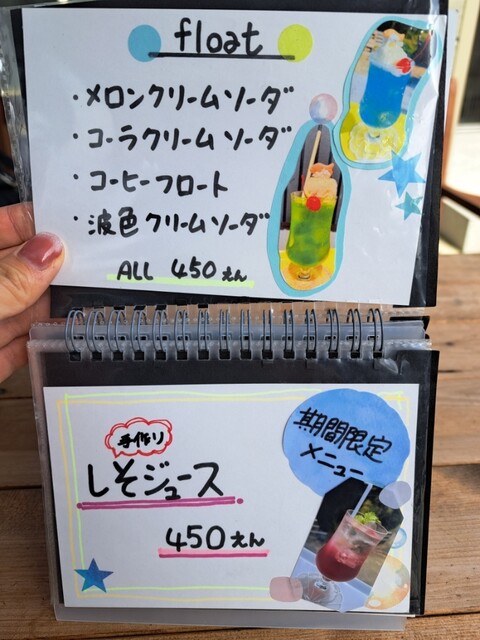 float
・メロンクリームソーダ
・コーラクリームソーダ
・コーヒーフロート
・波色クリームソーダ
ALL 450えん
期間限定
メニュー
手作り
しそジュース
450えん